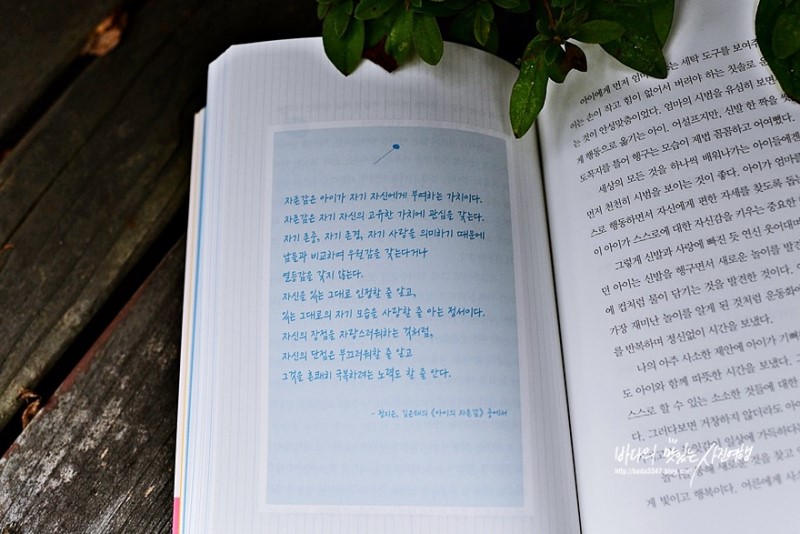 자존감은 아이가 자기 자신에게 부여하는 가치이다.
자존감은 자기 자신의 고유한 가치에 관심을 갖는다.
자기 존중, 자기 존경, 자기 사랑을 의미하기 때문에
남들과 비교하여 우월감을 갖는다거나
열등감을 갖지 않는다.
자신을 있는 그대로 인정할 줄 알고,
있는 그대로의 자기 모습을 사랑할 줄 아는 정서이다.
자신의 장점을 자랑스러워하는 것처럼,
자신의 단점은 부끄러워할 줄 알고
그것을 흔쾌히 극복하려는 노력도 할 줄 안다.
- 정지은, 김민태의 《아이의 자존감》 중에서
아이에게 먼저 엄마 는 세탁 도구를 보여주
이는 손이 작고 힘이 없어서 버려야 하는 칫솔로 운
는 것이 안성맞춤이었다. 엄마의 시범을 유심히 보면
게 행동으로 옮기는 아이. 어설프지만, 신발 한 짝을 씻
도꼭지를 틀어 헹구는 모습이 제법 꼼꼼하고 여여했다.
세상의 모든 것을 하나씩 배워나가는 아이들에겐
먼저 천천히 시범을 보이는 것이 좋다. 아이가 엄마를
스로 행동하면서 자신에게 편한 자세를 찾도록 돕는
이 아이가 스스로에 대한 자신감을 키우는 중요한
그렇게 신발과 사랑에 빠진 듯 연신 웃어대며
던 아이는 신발을 헹구면서 새로운 놀이를 발견
에 컵처럼 물이 담기는 것을 발견한 것이다.
가장 재미난 놀이를 알게 된 것처럼 운동화에
를 반복하며 정신없이 시간을 보냈다.
나의 아주 사소한 제안에 아이가 기뻐
도 아이와 함께 따뜻한 시간을 보냈다.
스로 할 수 있는 소소한 것들에 대한
다. 그러다보면 거창하지 않더라도 아이
일상에 가득하다는
통해 새로운 것을 찾고
게 빛이고 행복이다. 어른에게 사소
바다의 맛있는 사진여행